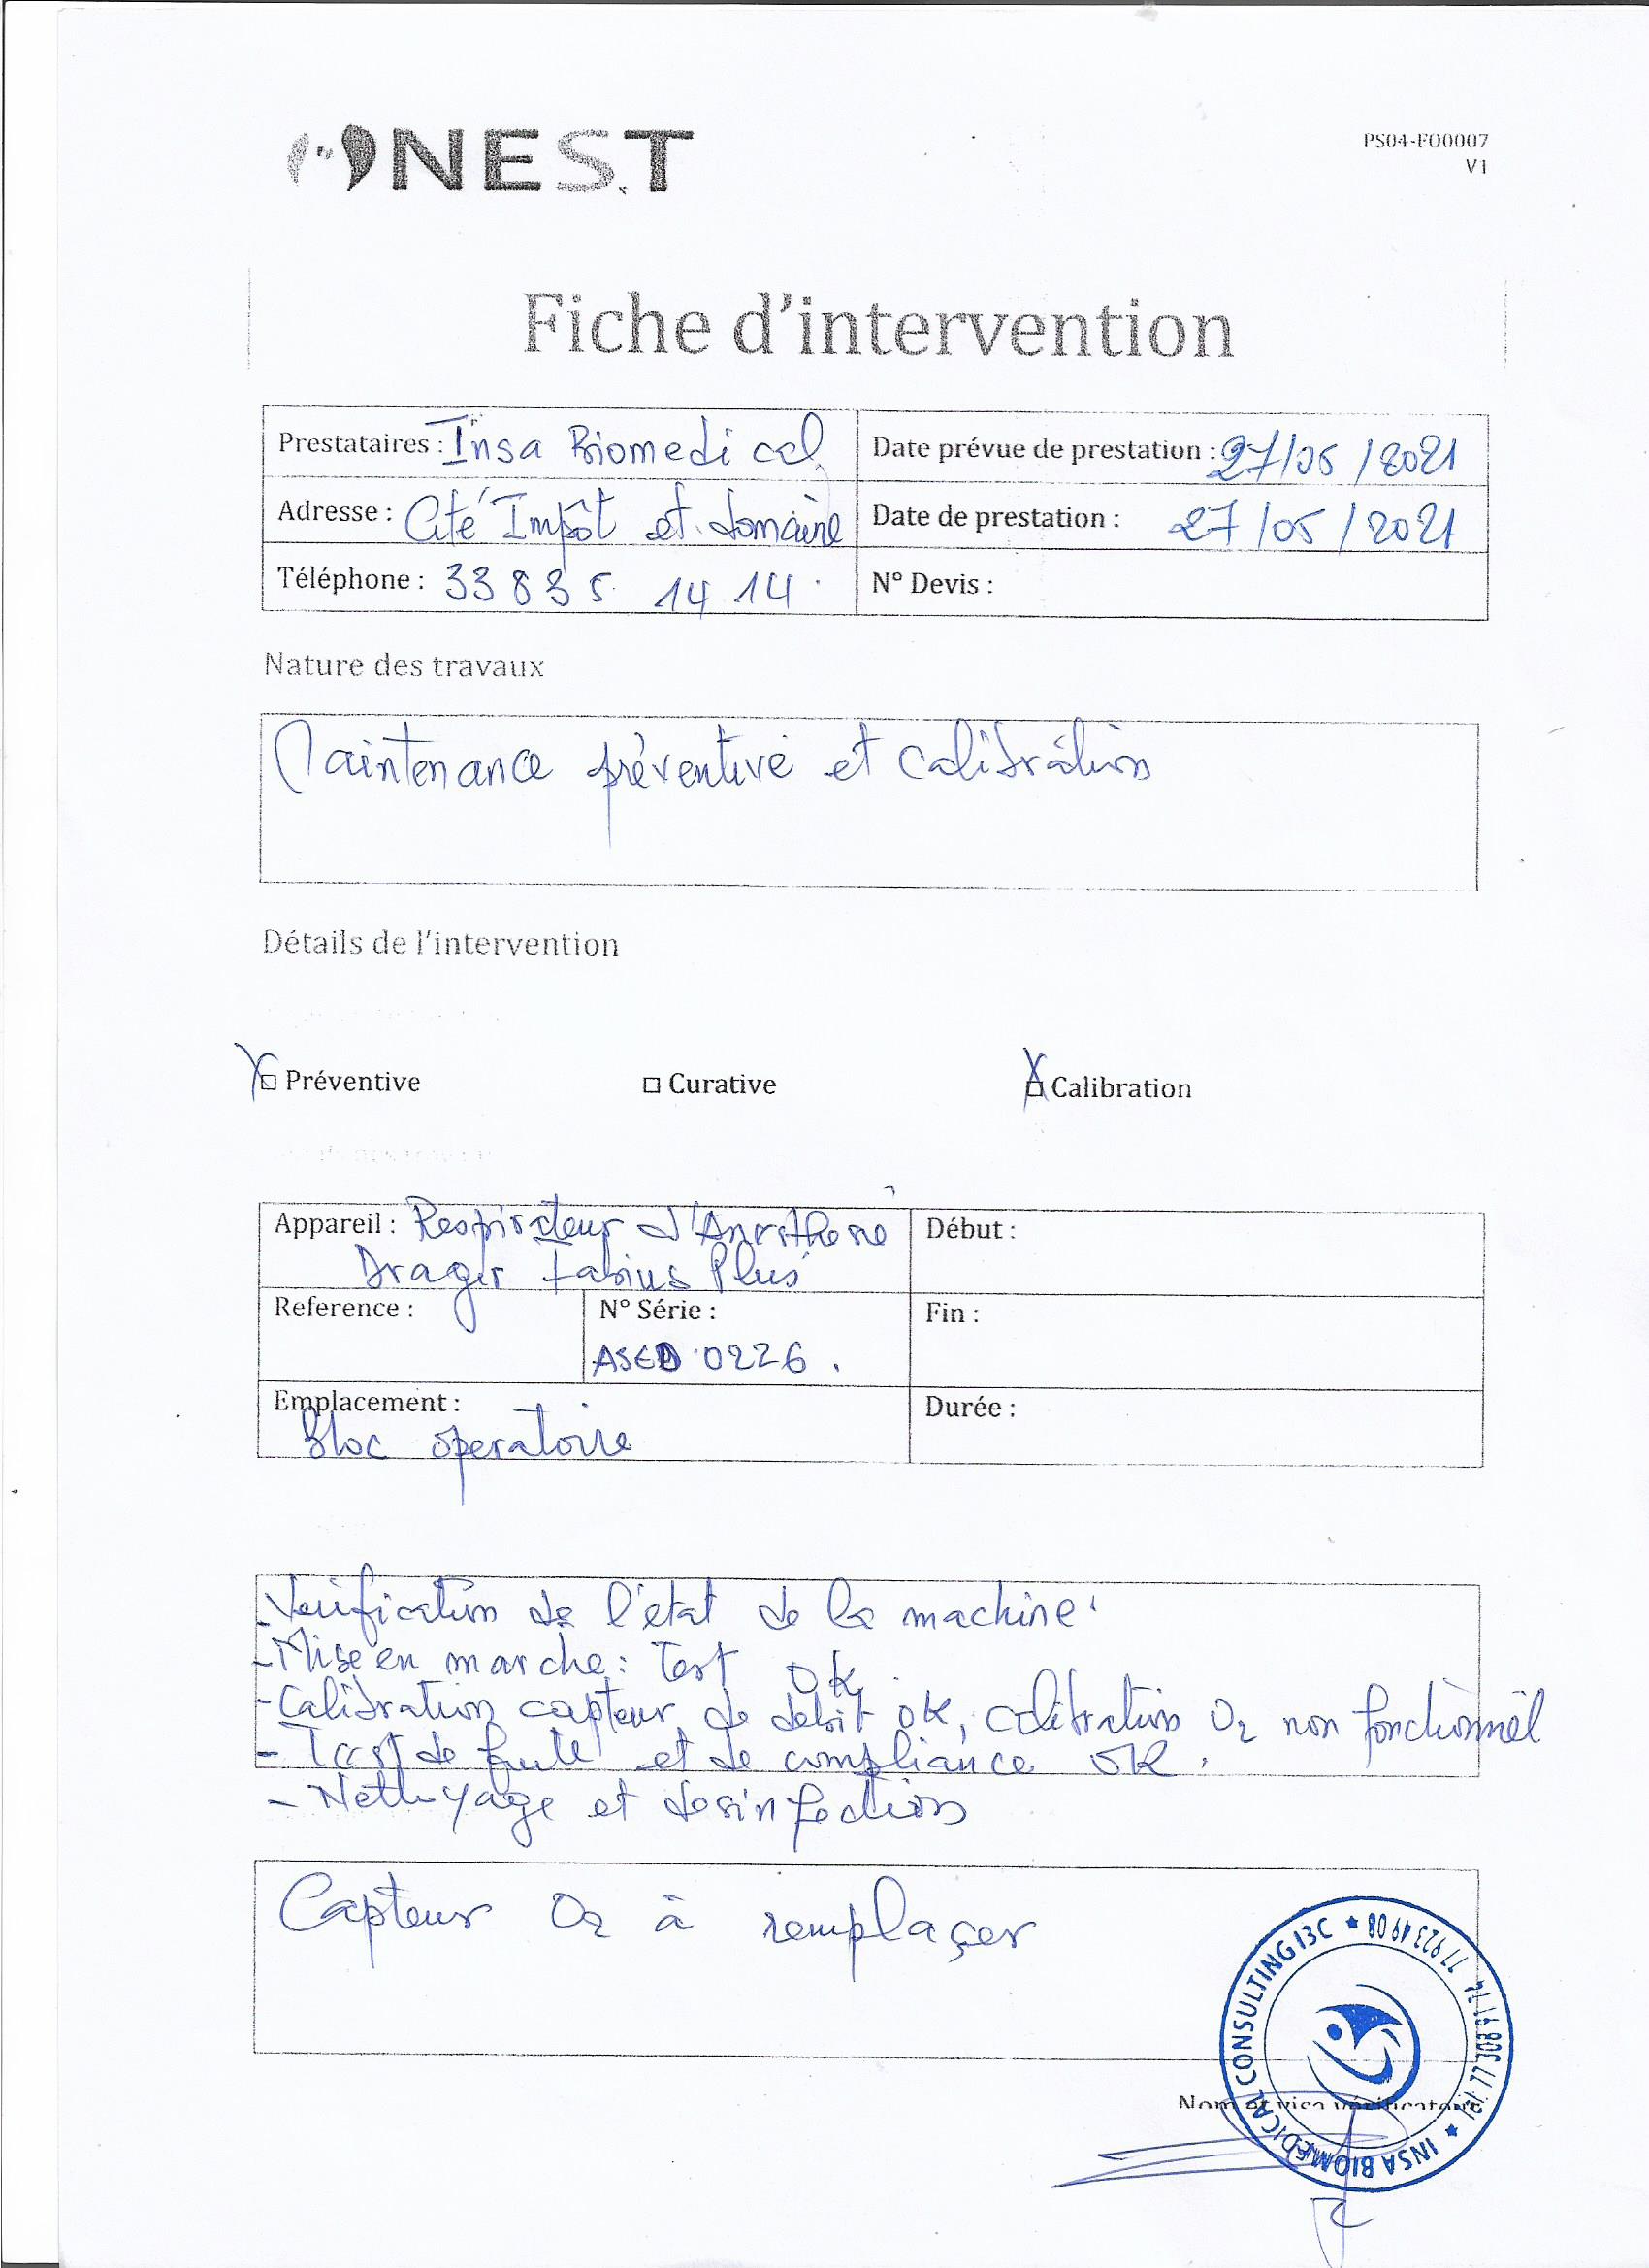 NEST
PS04-FO0007
V1
Fiche d'intervention
Prestataires : Insa Biomedical
Date prévue de prestation : 27/05/2021
Adresse : Cité Impôt et domaine
Date de prestation : 27/05/2021
Téléphone : 33 835 14 14
N° Devis :
Nature des travaux
Maintenance préventive et calibration
Détails de l'intervention
Préventive
Curative
Calibration
Appareil : Respirateur d'Anesthesie
Drager Fabius Plus
Début :
Reference :
N° Série :
ASED 0226.
Fin :
Emplacement :
Bloc operatoire
Durée :
- Verification de l'état de la machine
- Mise en marche : Test OK
- Calibration capteur de debit OK, calibration O2 non fonctionnel
- Test de fuite et de compliance OK.
- Nettoyage et desinfection
Capteur O2 à remplaçer
Nom et visa vérificateur
INSA BIOMEDICAL CONSULTING I3C ★ 77 923 49 08
77 308 91 74